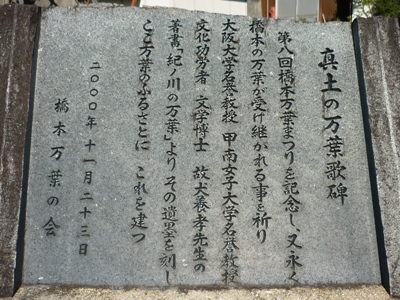 真土の万葉歌碑
第八回橋本万葉まつりを記念し、又永く
橋本の万葉が受け継がれる事を祈り
大阪大学名誉教授 甲南女子大学名誉教授
文化功労者 文学博士 故犬養孝先生の
著書「紀ノ川の万葉」より その遺墨を刻し
ここ万葉のふるさとに これを建つ
二〇〇〇年 十一月二十三日
橋本万葉の会